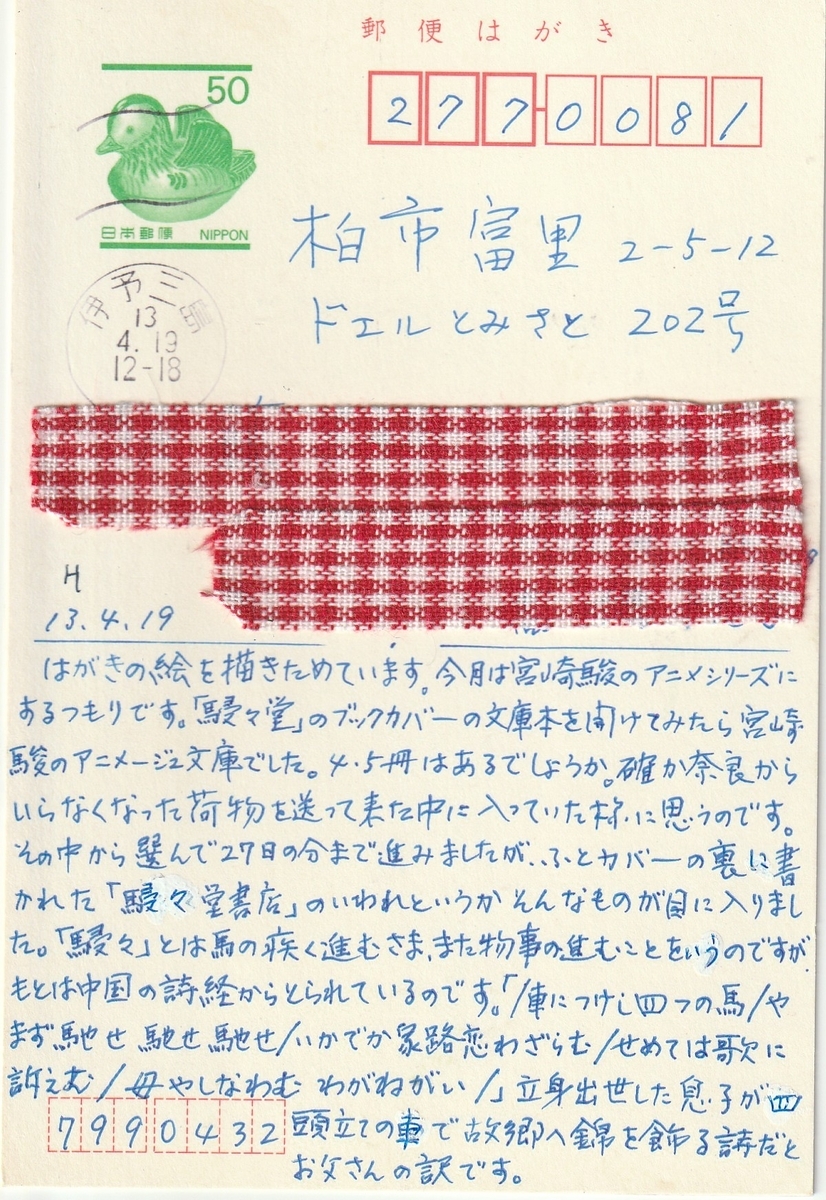 郵便はがき
50
日本郵便 NIPPON
277-0081
柏市富里 2-5-12
ドエルとみさと 202号
伊予三島
13
4.19
12-18
H
13.4.19
はがきの絵を描きためています。今月は宮崎駿のアニメシリーズに
するつもりです。「駸々堂」のブックカバーの文庫本を開けてみたら宮崎
駿のアニメージュ文庫でした。4・5冊はあるでしょうか。確か奈良から
いらなくなった荷物を送って来た中に入っていた様に思うのです。
その中から選んで27日の分まで進みましたが、ふとカバーの裏に書
かれた「駸々堂書店」のいわれというかそんなものが目に入りまし
た。「駸々」とは馬の疾く進むさま、また物事の進むことをいうのですが、
もとは中国の詩経からとられているのです。「/車につけし四つの馬/や
まず馳せ 馳せ馳せ/いかでか家路恋わざらむ/せめては歌に
訴えむ/母やしなわむ わがねがい/」立身出世した息子が四
頭立ての車で故郷へ錦を飾る詩だと
お父さんの訳です。
7990432